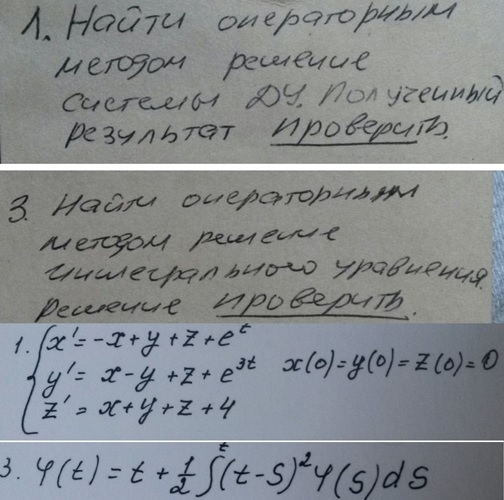 1. Найти операторным
методом решение
системы ДУ. Полученный
результат проверить.
3. Найти операторным
методом решение
интегрального уравнения.
Решение проверить.
1. { x' = -x + y + z + e^t
y' = x - y + z + e^{3t}   x(0) = y(0) = z(0) = 0
z' = x + y + z + 4
3. φ(t) = t + 1/2 ∫^t (t-s)^2 φ(s) ds